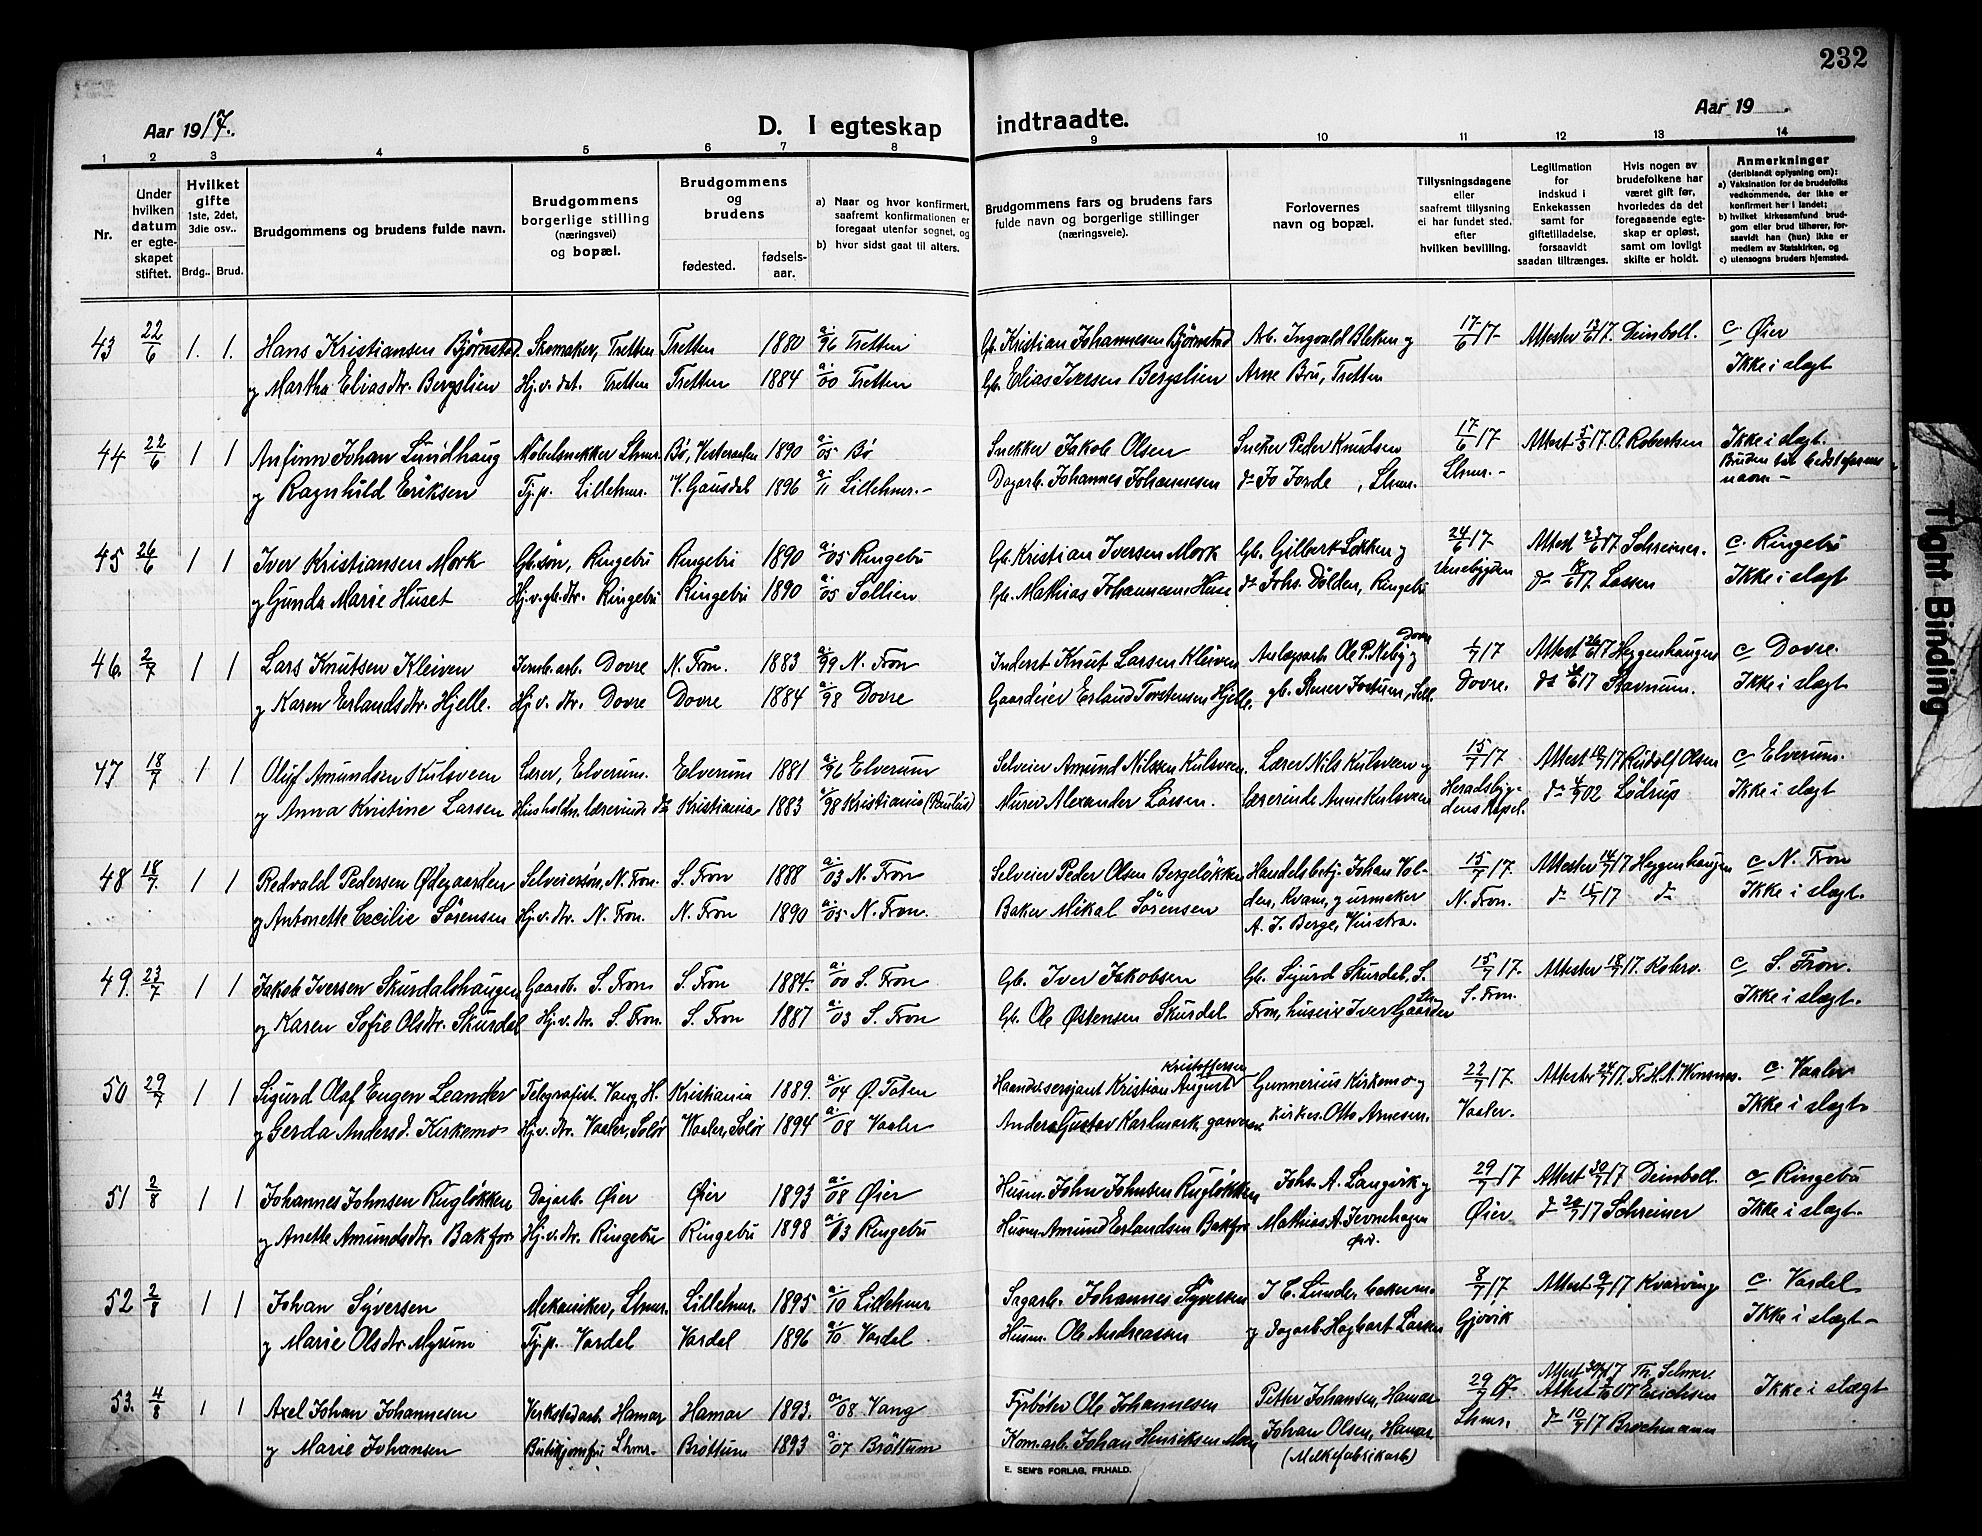 232
Aar 1917.
D. I egteskap indtraadte.
Aar 19
1 2 3 4 5 6 7 8 9 10 11 12 13 14
Nr.
Under hvilken datum er egteskapet stiftet.
Hvilket gifte 1ste, 2det, 3die osv..
Brdg.. Brud.
Brudgommens og brudens fulde navn.
Brudgommens borgerlige stilling (næringsvei) og bopæl.
Brudgommens og brudens
fødested. fødselsaar.
a) Naar og hvor konfirmert, saafremt konfirmationen er foregaat utenfor sognet, og
b) hvor sidst gaat til alters.
Brudgommens fars og brudens fars fulde navn og borgerlige stillinger (næringsveie).
Forlovernes navn og bopæl.
Tillysningsdagene eller saafremt tillysning ei har fundet sted, efter hvilken bevilling.
Legitimation for indskud i Enkekassen samt for giftetilladelse, forsaavidt saadan tiltrænges.
Hvis nogen av brudefolkene har været gift før, hvorledes da det foregaaende egteskap er opløst, samt om lovligt skifte er holdt.
Anmerkninger (deriblandt oplysning om):
a) Vaksination for de brudefolks vedkommende, der ikke er konfirmert her i landet;
b) hvilket kirkesamfund brudgom eller brud tilhører, forsaavidt han (hun) ikke er medlem av Statskirken, og
c) utensogns bruders hjemsted.
43 22/6 1. 1. Hans Kristiansen Bjørnstad. Skomaker, Tretten Tretten 1880 a. 96 Tretten Gb. Kristian Johannesen Bjørnstad Arb. Ingvald Bleken og 17/6 17 Attester 13/6 17. Deinboll. c. Øier
og Martha Eliasdtr. Bergslien Hj.v. det. Tretten Tretten 1884 a. 00 Tretten Gb. Elias Iversen Bergslien Arne Bru, Tretten Ikke i slegt
44 22/6 1 1 Anfinn Johan Lundhaug Møbelsnekker Lhmr. Bø, Vesteraalen 1890 a. 05 Bø Snekker Jakob Olsen Snekker Peder Knudsen 17/6 17 Attest 5/5 17 O. Robertsen Ikke i slegt.
og Ragnhild Eriksen Tj.p. Lillehmr. V. Gausdal 1896 a. 11 Lillehmr. Dagarb. Johannes Johannesen do Jo Forde, Lhmr. Lhmr. Bruden tok bedstefarens navn
45 26/6 1 1 Iver Kristiansen Mork Gb.søn, Ringebu Ringebu 1890 a. 05 Ringebu Gb. Kristian Iversen Mork Gb. Gilbert Løkken og 24/6 17. Attest 23/6 17 Schreiner. c. Ringebu
og Gunda Marie Huset Hj.v. gb.dtr. Ringebu Ringebu 1890 a. 05 Sollien Gb. Mathias Johannesen Huse do Johs. Dølden, Ringebu Venebygden do 17 Lassen Ikke i slegt
46. 2/7 1 1 Lars Knutsen Kleiven Jernb. arb. Dovre N. Fron. 1883 a. 99 N. Fron Inderst Knut Larsen Kleiven Anlægsarb. Ole P. Neby Dovre og 1/7 17 Attest 26/6 17 Heggenhaugen c Dovre.
og Karen Erlandsdtr. Hjelle. Hj.v. dtr. Dovre Dovre 1884 a. 98 Dovre Gaardeier Erland Torstensen Hjelle. Dovre. do 17 Stavrum. Ikke i slegt
47 18/7 1 1 Oluf Amundsen Kulsveen Lærer, Elverum. Elverum 1881 a. 96 Elverum Selveier Amund Nilssen Kulsveen. Lærer Nils Kulsveen og 15/7 17 Attest 10/7 17 Rudolf Olsen c Elverum.
og Anna Kristine Larsen Husholdn. lærerinde do Kristiania 1883 a. 98 Kristiania (Paulus) Murer Alexander Larsen. lærerinde Anne Kulsveen Heradsbygdens Kapel. do 02 Lødrup Ikke i slegt
48 18/7. 1 1 Redvald Pedersen Ødegaarden Selveiersøn, N. Fron. S. Fron 1888 a. 03 N. Fron Selveier Peder Olsen Bergeløkken Handelsbetj. Johan Volden, Kvam, og urmaker A. J. Berge, Vinstra. 15/7 17. Attester 14/7 17 Heggenhaugen c N. Fron
og Antonette Cecilie Sørensen Hj.v. dtr. N. Fron. N. Fron 1890 a. 05 N. Fron. Baker Mikal Sørensen N. Fron. do 17 do Ikke i slegt.
49. 23/7 1 1 Jakob Iversen Skurdalshaugen Gaardb. S. Fron S. Fron 1884. a. 00 S. Fron Gb. Iver Jakobsen Gb. Sigurd Skurdal, S. 15/7 17. Attester 18/7 17. Rohrv. c S. Fron.
og Karen Sofie Olsdtr. Skurdal Hj.v. dtr. S. Fron. S. Fron 1887 a. 03 S. Fron Gb. Ole Østensen Skurdal Fron, huseier Iver Gaarder S. Fron. Ikke i slegt.
50 29/7 1 1 Sigurd Olaf Eugen Leander Telegrafist. Vang, H. Kristiania 1889. a. 04 Ø. Toten Haandv.sersjant Kristian August Kristoffersen Gunnerius Kirkemo og 22/7 17. Attester 24/7 17. Fr. H. A. Winsnes. c. Vaaler
og Gerda Andersd. Kirkemo Hj.v. dtr. Vaaler, Solør Vaaler, Solør 1894 a. 08 Vaaler Anders Gustav Karlmark, garver kirkes. Otto Arnesen. Vaaler. Ikke i slegt
51 2/8 1 1 Johannes Johnsen Rugløkken Dagarb. Øier Øier 1893 a. 08 Øier Husm. John Johnsen Rugløkken Johs. A. Langvik og 29/7 17 Attest 30/7 17 Deinboll. c Ringebu
og Anette Amundsdtr. Bakfor Hj.v. dtr. Ringebu Ringebu 1898 a. 13 Ringebu Husm. Amund Erlandsen Bakfor Mathias A. Jevnehagen Øier. Øier do 17 Schreiner Ikke i slegt.
52 2/8 1 1 Johan Syversen Mekaniker, Lhmr. Lillehmr. 1895 a. 10 Lillehmr Sagarb. Johannes Syversen J. C. Lunde, bakerm. 8/7 17 Attest 9/7 17 Kvarving c. Vardal
og Marie Olsdtr. Myrum Tj.p. Vardal Vardal 1896 a. 10 Vardal Husm. Ole Andreassen og Dagarb. Hagbart Larsen Gjøvik Ikke i slegt
53. 4/8 1 1 Axel Johan Johannesen Verkstedarb. Hamar Hamar 1893. a. 08. Vang Fyrbøter Ole Johannesen Petter Johansen, Hamar 29/7 17. Attest 30/7 17 Th. Selmer Attest 07 Erichsen Ikke i slegt
og Marie Johansen Butikjomfru Lhmr. Brøttum 1893 a. 07 Brøttum Kom.arb. Johan Henriksen Johan Olsen, Hamar (Melkefabrikarb) Lhmr. do 10/7 17 Brochmann
E. SEM'S FORLAG, FR.HALD.
Tight Binding